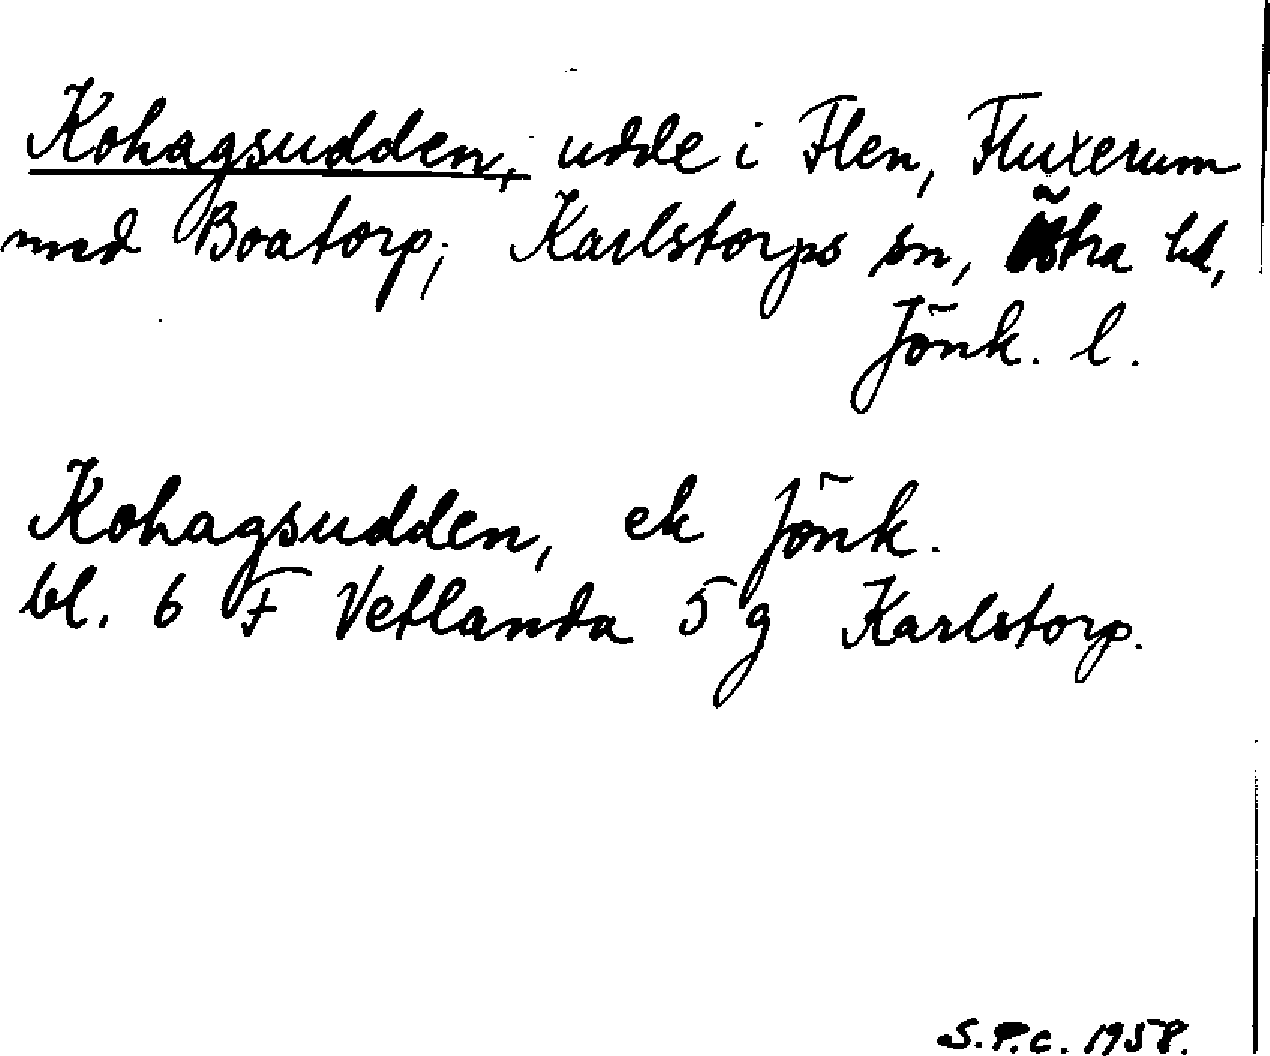 Kohagsudden, udde i Flen, Fluxerum
med Boatorp; Karlstorps sn, Östra hd,
Jönk. l.
Kohagsudden, ek Jönk.
bl. 6 F Vetlanda 5 g Karlstorp.
S.P.C. 1958.